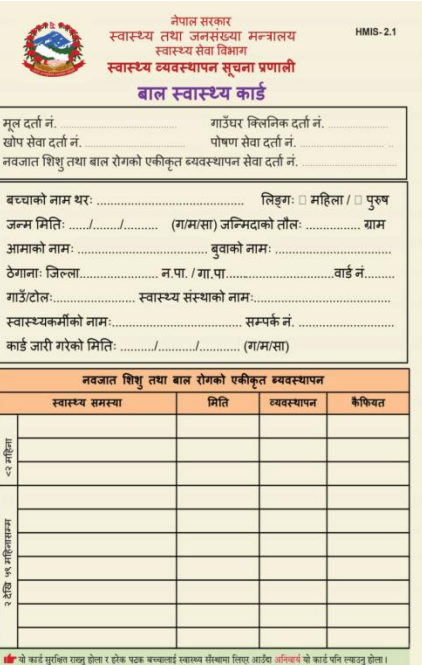 नेपाल सरकार
स्वास्थ्य तथा जनसंख्या मन्त्रालय
HMIS- 2.1
स्वास्थ्य सेवा विभाग
स्वास्थ्य व्यवस्थापन सूचना प्रणाली
बाल स्वास्थ्य कार्ड
मूल दर्ता नं. .................................... गाउँघर क्लिनिक दर्ता नं. ......................
खोप सेवा दर्ता नं. .............................. पोषण सेवा दर्ता नं. ............................
नवजात शिशु तथा बाल रोगको एकीकृत ब्यवस्थापन सेवा दर्ता नं. ................................
बच्चाको नाम थरः .......................................... लिङ्गः □ महिला / □ पुरुष
जन्म मितिः ....../......../.......... (ग/म/सा) जन्मिदाको तौलः ................ ग्राम
आमाको नामः ..................................... बुवाको नामः ..................................
ठेगानाः जिल्ला....................... न.पा. / गा.पा...............................वार्ड नं.........
गाउँ/टोलः....................... स्वास्थ्य संस्थाको नामः.......................................
स्वास्थ्यकर्मीको नामः..................................... सम्पर्क नं. ...........................
कार्ड जारी गरेको मितिः ........../.........../............ (ग/म/सा)
नवजात शिशु तथा बाल रोगको एकीकृत ब्यवस्थापन
स्वास्थ्य समस्या मिति व्यवस्थापन कैफियत
<२ महिना
२ देखि ५९ महिनासम्म
यो कार्ड सुरक्षित राख्नु होला र हरेक पटक बच्चालाई स्वास्थ्य सँस्थामा लिएर आउँदा अनिवार्य यो कार्ड पनि ल्याउनु होला।